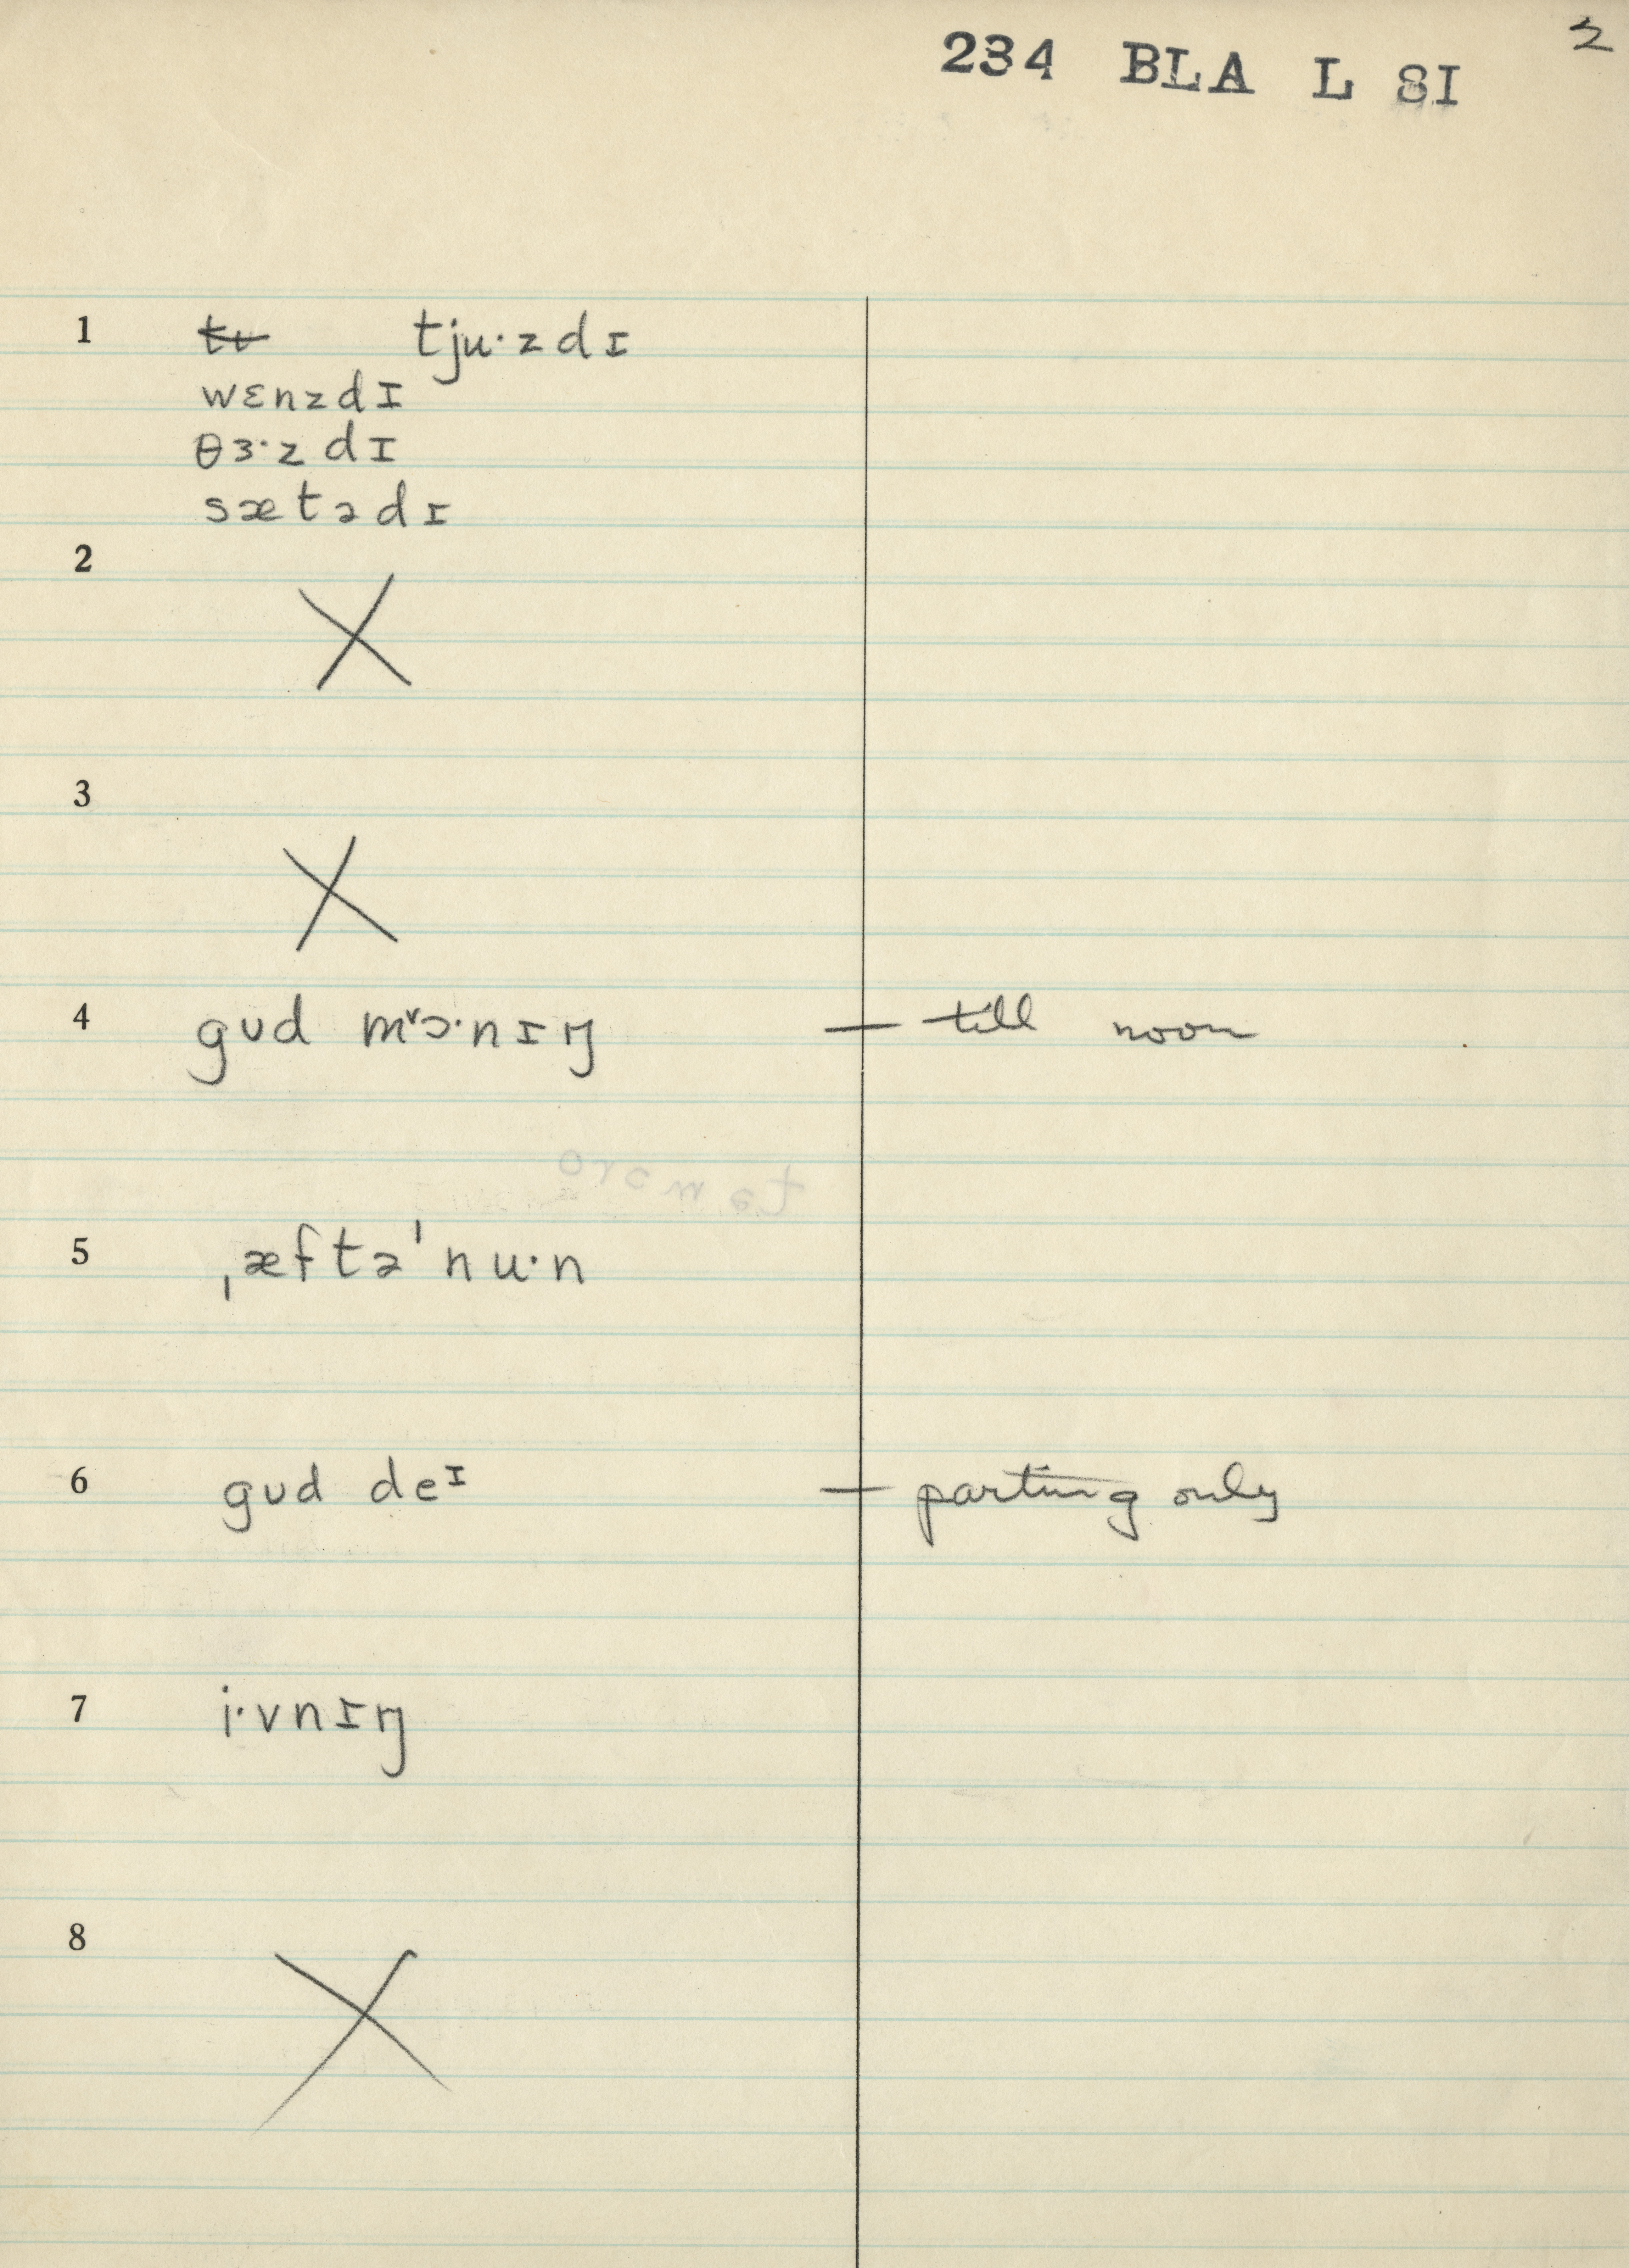 3
234 BLA L SI
1 tʋ tju·zdɪ
wɛnzdɪ
θɜ·zdɪ
sætədɪ
2 X
3 X
4 gʊd mᵛɔ·nɪŋ — till noon
5 ˌæftəˈnu·n
6 gʊd deᶦ — parting only
7 i·vnɪŋ
8 X